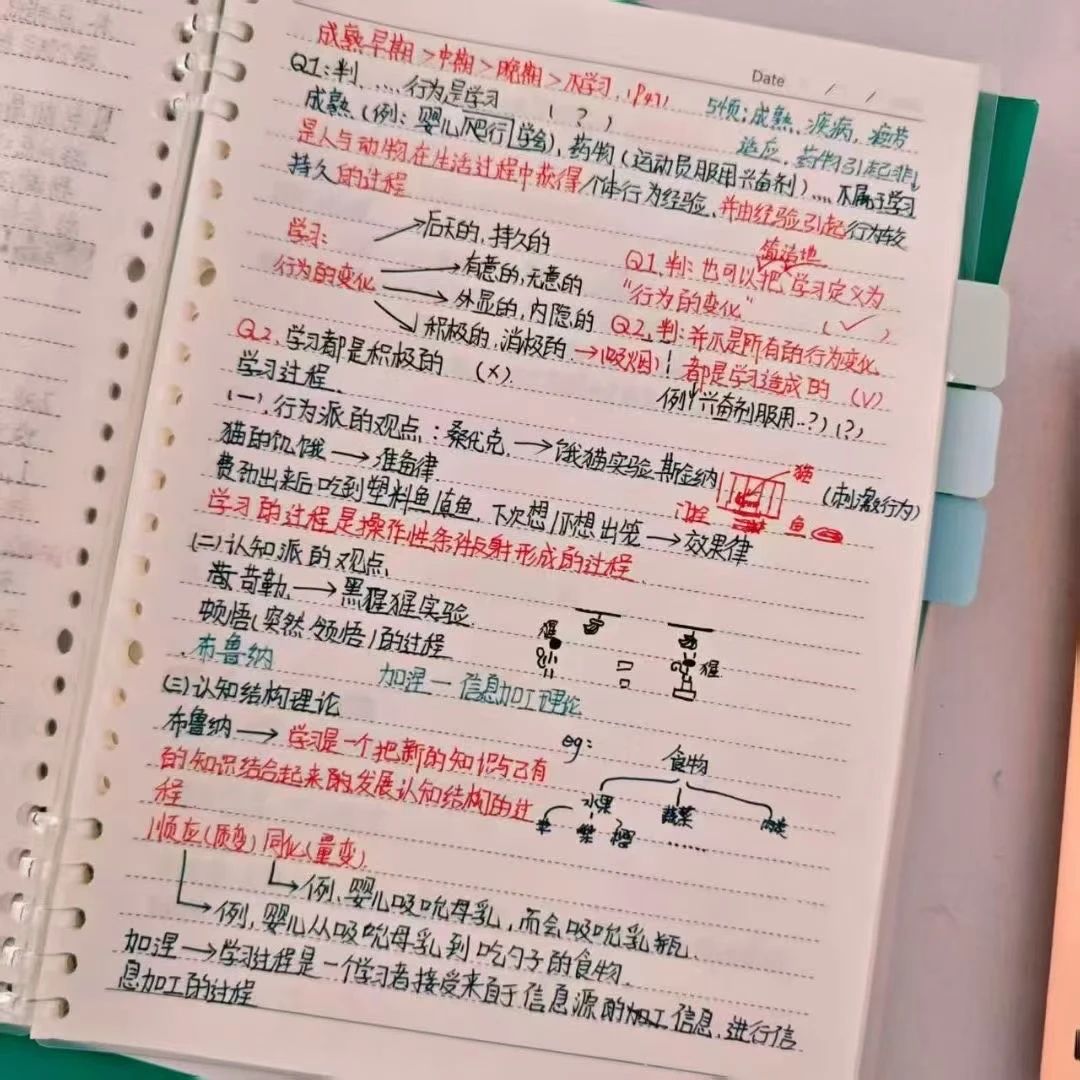 Date / /
成熟早期>中期>晚期>不学习.(P47)
Q1:判.....行为是学习 ( ? )
5情:成熟,疾病,疲劳
适应,药物引起非↓
成熟(例:婴儿爬行学会),药物(运动员服用兴奋剂)....不属于学习
是人与动物在生活过程中获得个体行为经验,并由经验引起行为较
持久的过程
学习:
行为的变化
后天的,持久的
有意的,无意的
外显的,内隐的
积极的,消极的→(吸烟)
简洁地
Q1,判:也可以把学习定义为
"行为的变化" (✓)
Q2,判:并不是所有的行为变化
都是学习造成的 (√)
例 兴奋剂服用..?)(?)
Q2,学习都是积极的 (×).
学习过程.
(一).行为派的观点:桑代克.→饿猫实验.斯金纳
猫 (刺激行为)
鱼
猫的饥饿→准备律
费劲出来后吃到塑料鱼/真鱼,下次想/不想出笼→效果律
学习的过程是操作性条件反射形成的过程.
(二)认知派的观点.
苛勒.→黑猩猩实验.
顿悟(突然领悟)的过程
猩 猩
.布鲁纳 加涅一信息加工理论
(三)认知结构理论
布鲁纳→学习是一个把新的知识与已有
的知识结合起来的发展认知结构的过
程
eg: 食物
水果 蔬菜 肉类
苹 梨 榴 ......
顺应(质变)同化(量变).
例,婴儿吸吮母乳,而会吸吮乳瓶.
例,婴儿从吸吮母乳到吃勺子的食物.
加涅→学习过程是一个学习者接受来自于信息源的加工信息,进行信
息加工的过程